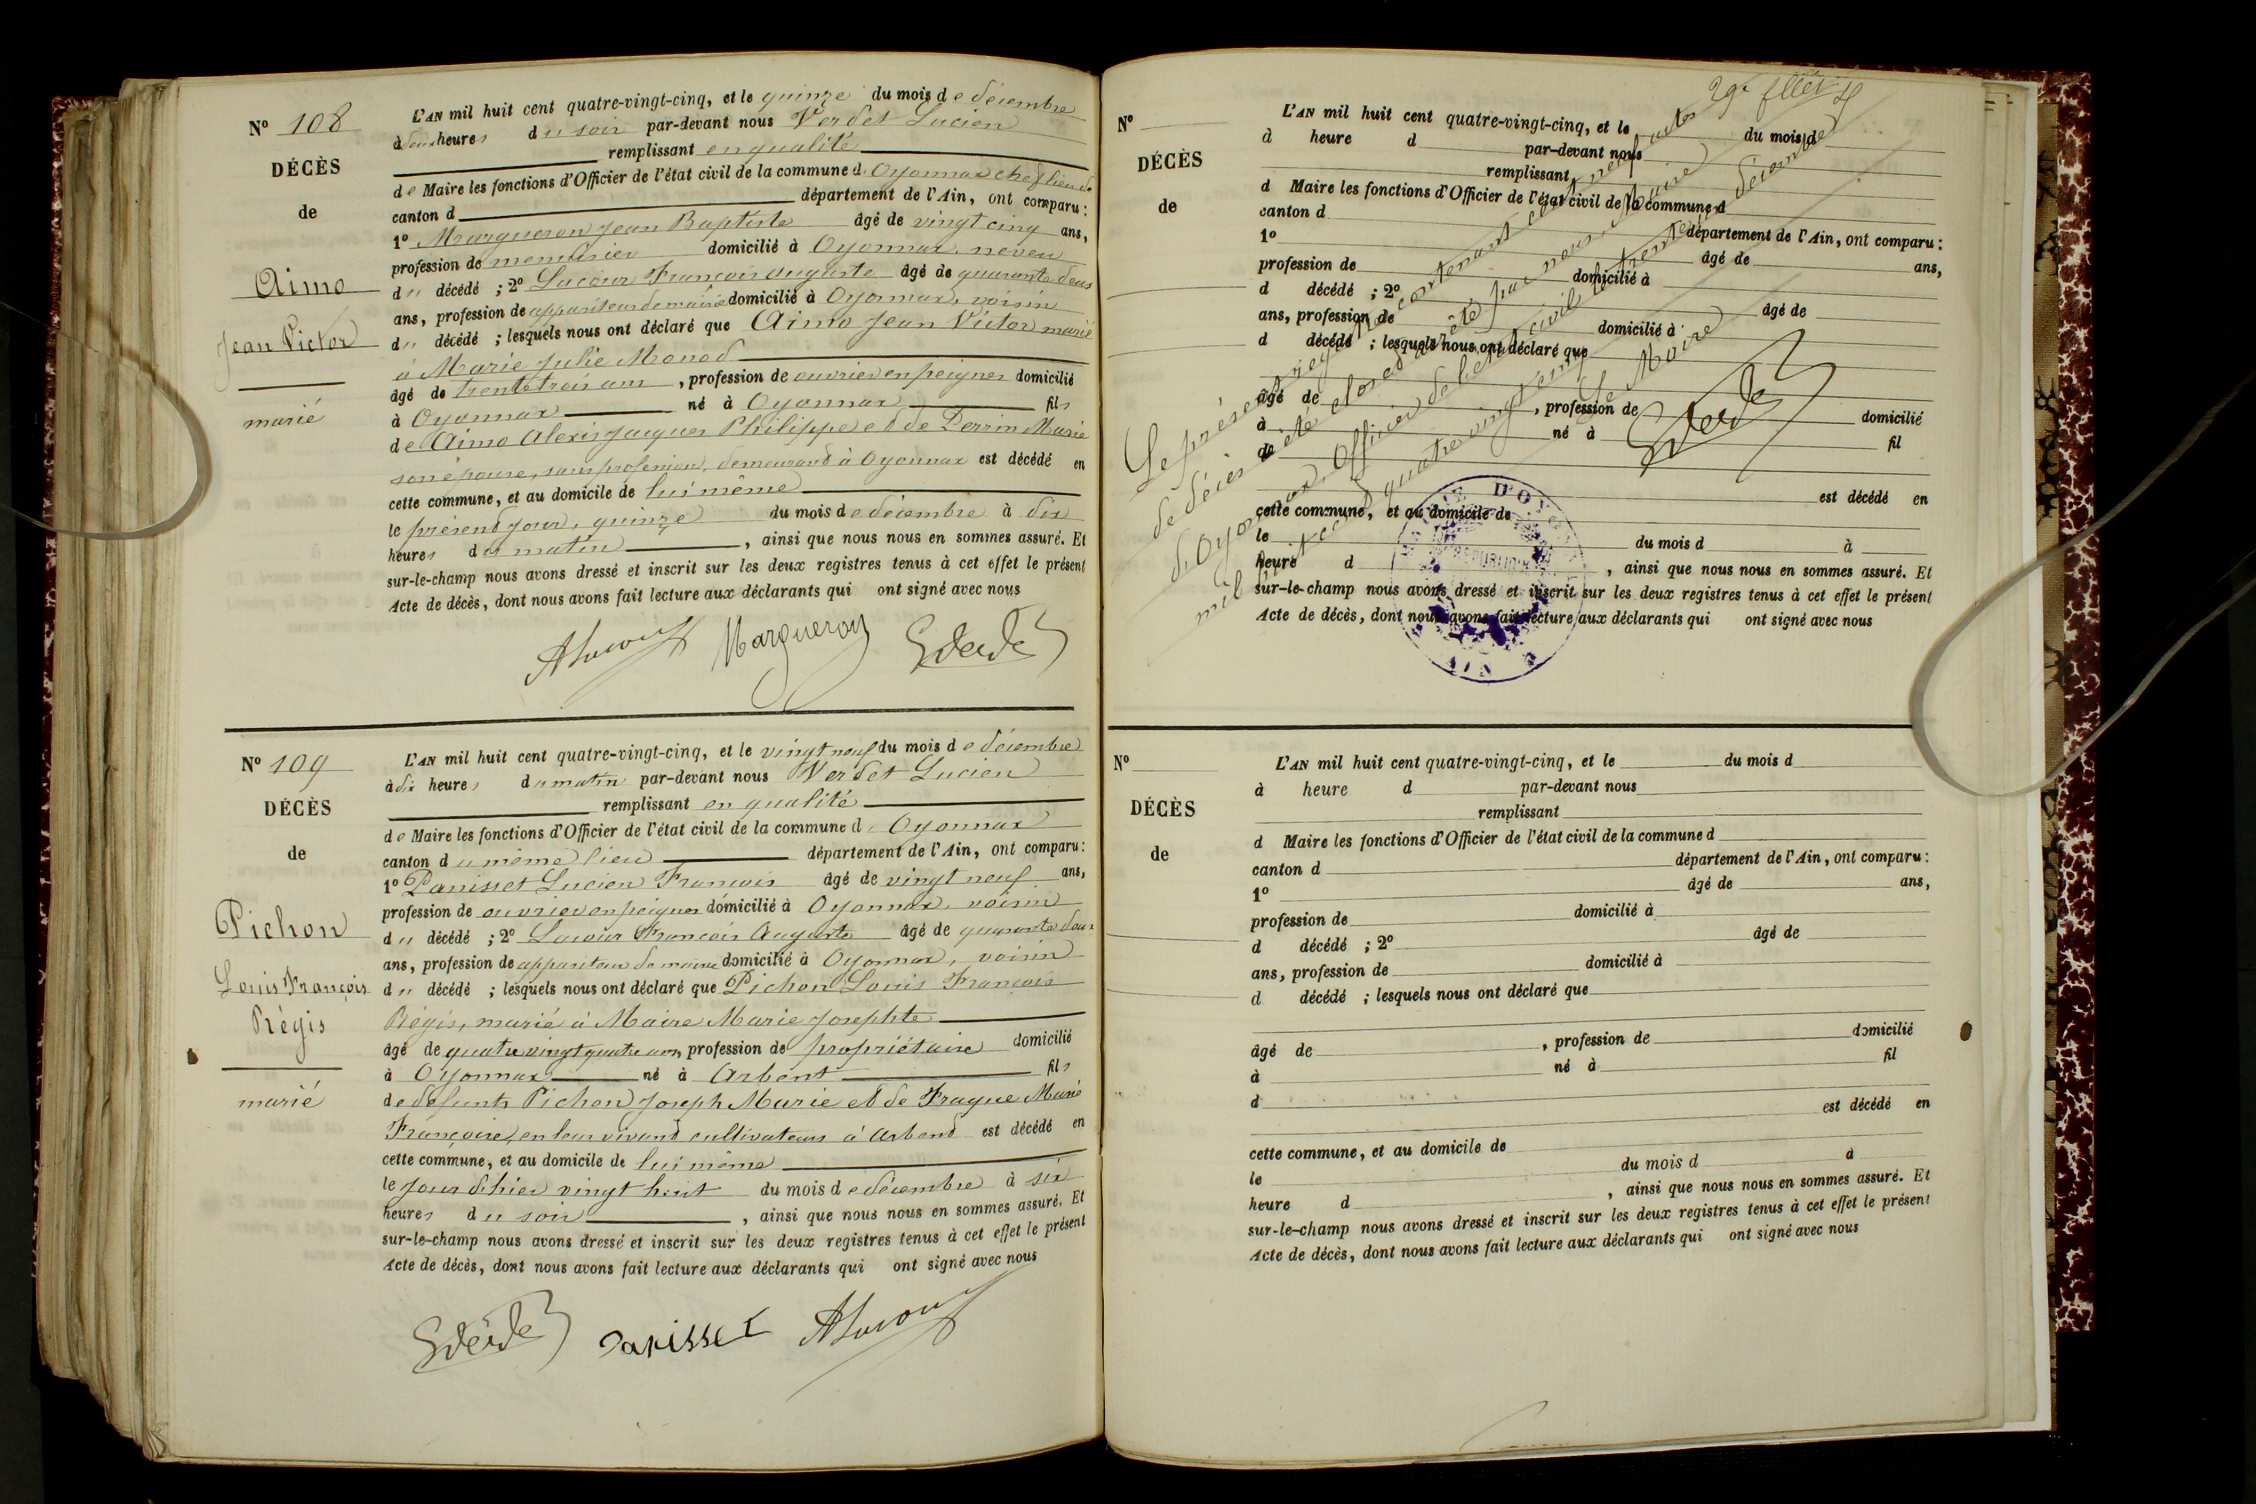 Nº 108
DÉCÈS
de
Aimo
Jean Victor
marié
L'AN mil huit cent quatre-vingt-cinq, et le quinze du mois de décembre
à deux heures du soir par-devant nous Verdet Lucien
remplissant en qualité
de Maire les fonctions d'Officier de l'état civil de la commune d'Oyonnax chef lieu de
canton d département de l'Ain, ont comparu :
1º Margueron Jean Baptiste âgé de vingt cinq ans,
profession de menuisier domicilié à Oyonnax, neveu
du décédé ; 2º Lacour François Auguste âgé de quarante deux
ans, profession de appariteur de mairie domicilié à Oyonnax, voisin
du décédé ; lesquels nous ont déclaré que Aimo Jean Victor marié
à Marie Julie Monod
âgé de trente trois ans, profession de ouvrier en peignes domicilié
à Oyonnax né à Oyonnax fils
de Aimo Alexis Jacques Philippe et de Perrin Marie
son épouse, sans profession, demeurant à Oyonnax est décédé en
cette commune, et au domicile de lui même
le présent jour, quinze du mois de décembre à dix
heures du matin, ainsi que nous nous en sommes assuré. Et
sur-le-champ nous avons dressé et inscrit sur les deux registres tenus à cet effet le présent
Acte de décès, dont nous avons fait lecture aux déclarants qui ont signé avec nous
ALacour Margueron Verdet
Nº 109
DÉCÈS
de
Pichon
Louis François
Régis
marié
L'AN mil huit cent quatre-vingt-cinq, et le vingt neuf du mois de décembre
à dix heures du matin par-devant nous Verdet Lucien
remplissant en qualité
de Maire les fonctions d'Officier de l'état civil de la commune d'Oyonnax
canton du même lieu département de l'Ain, ont comparu :
1º Panisset Lucien François âgé de vingt neuf ans,
profession de ouvrier en peignes domicilié à Oyonnax, voisin
du décédé ; 2º Lacour François Auguste âgé de quarante deux
ans, profession de appariteur de mairie domicilié à Oyonnax, voisin
du décédé ; lesquels nous ont déclaré que Pichon Louis François
Régis, marié à Maire Marie Josephte
âgé de quatre vingt quatre ans, profession de propriétaire domicilié
à Oyonnax né à Arbent fils
de défunts Pichon Joseph Marie et de Frague Marie
Françoise, en leur vivant cultivateurs à Arbent est décédé en
cette commune, et au domicile de lui même
le jour d'hier vingt huit du mois de décembre à six
heures du soir, ainsi que nous nous en sommes assuré. Et
sur-le-champ nous avons dressé et inscrit sur les deux registres tenus à cet effet le présent
Acte de décès, dont nous avons fait lecture aux déclarants qui ont signé avec nous
Verdet Panisset ALacour
Nº
DÉCÈS
de
L'AN mil huit cent quatre-vingt-cinq, et le du mois d
à heure d par-devant nous
remplissant
d Maire les fonctions d'Officier de l'état civil de la commune d
canton d département de l'Ain, ont comparu :
1º âgé de ans,
profession de domicilié à
d décédé ; 2º âgé de
ans, profession de domicilié à
d décédé ; lesquels nous ont déclaré que
âgé de , profession de domicilié
à né à fil
de
est décédé en
cette commune, et au domicile de
le du mois d à
heure d , ainsi que nous nous en sommes assuré. Et
sur-le-champ nous avons dressé et inscrit sur les deux registres tenus à cet effet le présent
Acte de décès, dont nous avons fait lecture aux déclarants qui ont signé avec nous
Le présent registre contenant cent neuf actes
de décès a été clos et arrêté par nous, Maire
d'Oyonnax, Officier de l'état civil le trente un décembre
mil huit cent quatre vingt cinq
Le Maire
Verdet
Nº
DÉCÈS
de
L'AN mil huit cent quatre-vingt-cinq, et le du mois d
à heure d par-devant nous
remplissant
d Maire les fonctions d'Officier de l'état civil de la commune d
canton d département de l'Ain, ont comparu :
1º âgé de ans,
profession de domicilié à
d décédé ; 2º âgé de
ans, profession de domicilié à
d décédé ; lesquels nous ont déclaré que
âgé de , profession de domicilié
à né à fil
d
est décédé en
cette commune, et au domicile de
le du mois d à
heure d , ainsi que nous nous en sommes assuré. Et
sur-le-champ nous avons dressé et inscrit sur les deux registres tenus à cet effet le présent
Acte de décès, dont nous avons fait lecture aux déclarants qui ont signé avec nous